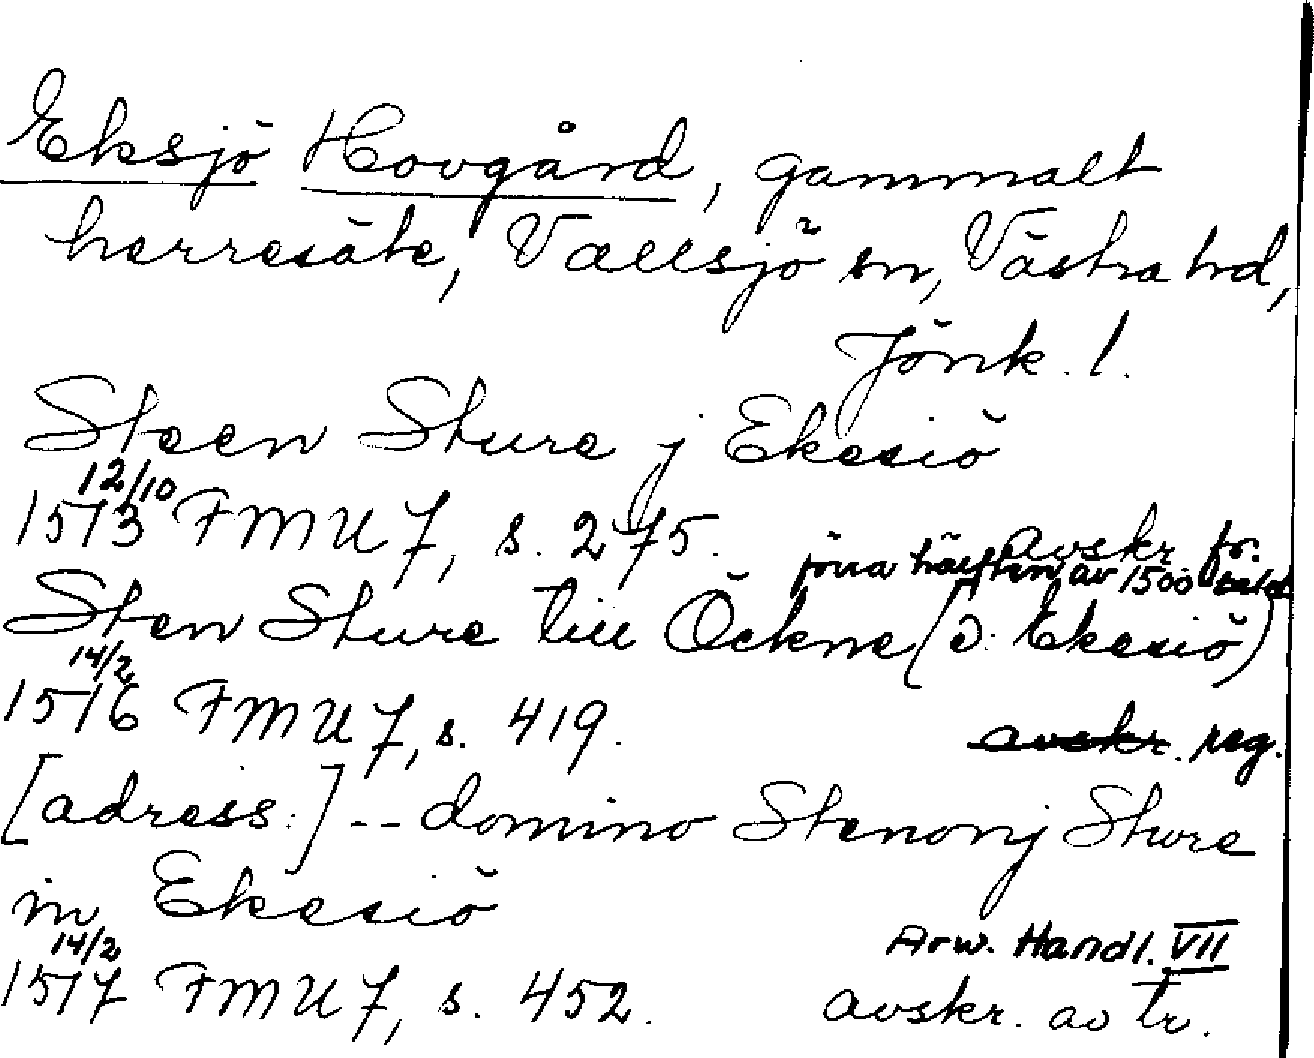 Eksjö Hovgård, gammalt
herresäte, Vallsjö sn, Västra hd,
Jönk. l.
Steen Sture j Ekesiö
12/10
1513 FMU 7, s. 275. avskr fr.
förra hälften av 1500-talet
Sten Sture till Öckne (ɔ: Ekesiö)
14/2
1516 FMU 7, s. 419. avskr. reg.
[adress:] -- domino Stenonj Sture
in Ekesiö
14/2 Arw. Handl. VII
1517 FMU 7, s. 452. avskr. av tr.